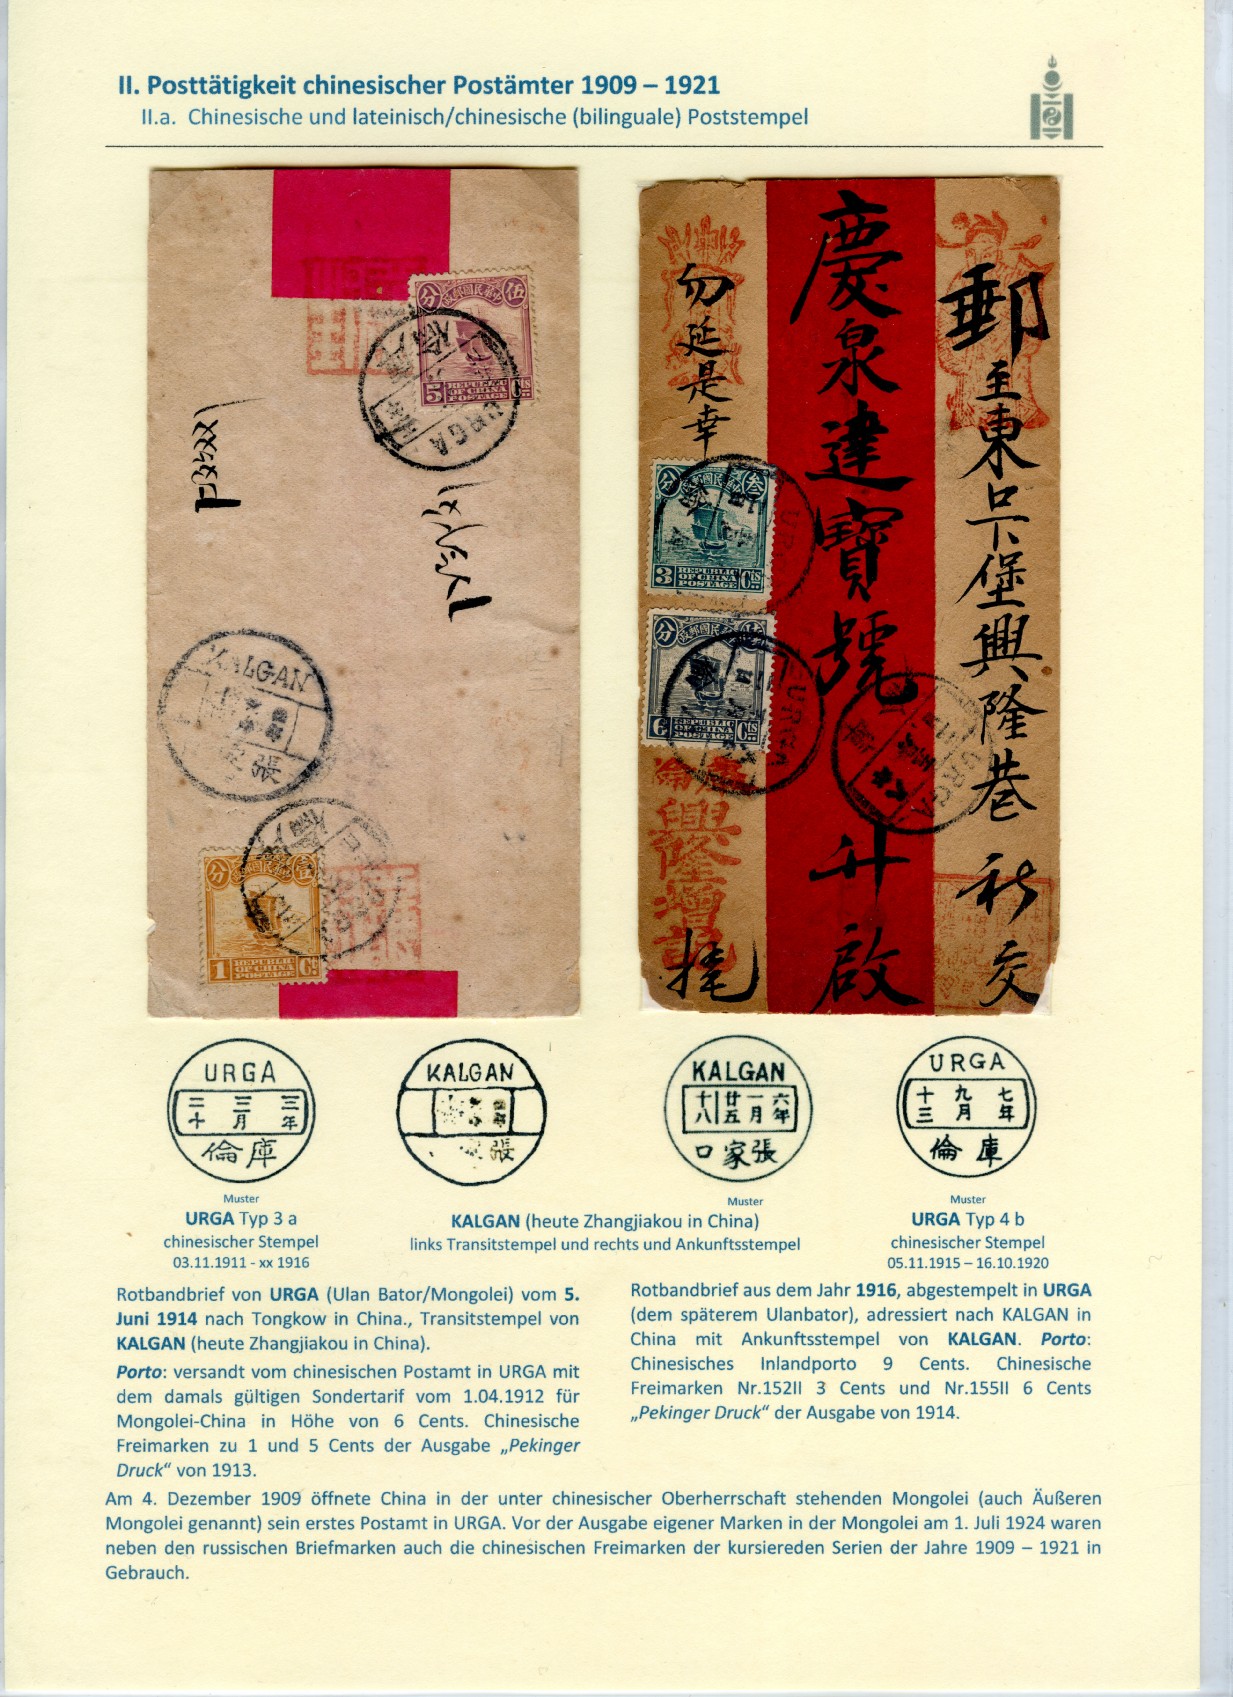 II. Posttätigkeit chinesischer Postämter 1909 – 1921
II.a. Chinesische und lateinisch/chinesische (bilinguale) Poststempel
伍
分
中華民國郵政
5
REPUBLIC
OF CHINA
POSTAGE
Cts
URGA
KALGAN
張
壹
分
1
REPUBLIC
OF CHINA
POSTAGE
Ct
郵
至東口下堡興隆巷 祈交
慶泉建寶號升啟
勿延是幸
叁
分
3
REPUBLIC
OF CHINA
POSTAGE
Cts
URGA
分
6
REPUBLIC
OF CHINA
POSTAGE
Cts
URGA
興隆增記
URGA
URGA
三年
三月
二十
庫倫
KALGAN
張
KALGAN
六年
一月
廿五
十八
張家口
URGA
七年
九月
十三
庫倫
Muster
URGA Typ 3 a
chinesischer Stempel
03.11.1911 - xx 1916
Muster
KALGAN (heute Zhangjiakou in China)
links Transitstempel und rechts und Ankunftsstempel
Muster
URGA Typ 4 b
chinesischer Stempel
05.11.1915 – 16.10.1920
Rotbandbrief von URGA (Ulan Bator/Mongolei) vom 5.
Juni 1914 nach Tongkow in China., Transitstempel von
KALGAN (heute Zhangjiakou in China).
Porto: versandt vom chinesischen Postamt in URGA mit
dem damals gültigen Sondertarif vom 1.04.1912 für
Mongolei-China in Höhe von 6 Cents. Chinesische
Freimarken zu 1 und 5 Cents der Ausgabe „Pekinger
Druck“ von 1913.
Rotbandbrief aus dem Jahr 1916, abgestempelt in URGA
(dem späterem Ulanbator), adressiert nach KALGAN in
China mit Ankunftsstempel von KALGAN. Porto:
Chinesisches Inlandporto 9 Cents. Chinesische
Freimarken Nr.152II 3 Cents und Nr.155II 6 Cents
„Pekinger Druck“ der Ausgabe von 1914.
Am 4. Dezember 1909 öffnete China in der unter chinesischer Oberherrschaft stehenden Mongolei (auch Äußeren
Mongolei genannt) sein erstes Postamt in URGA. Vor der Ausgabe eigener Marken in der Mongolei am 1. Juli 1924 waren
neben den russischen Briefmarken auch die chinesischen Freimarken der kursiereden Serien der Jahre 1909 – 1921 in
Gebrauch.